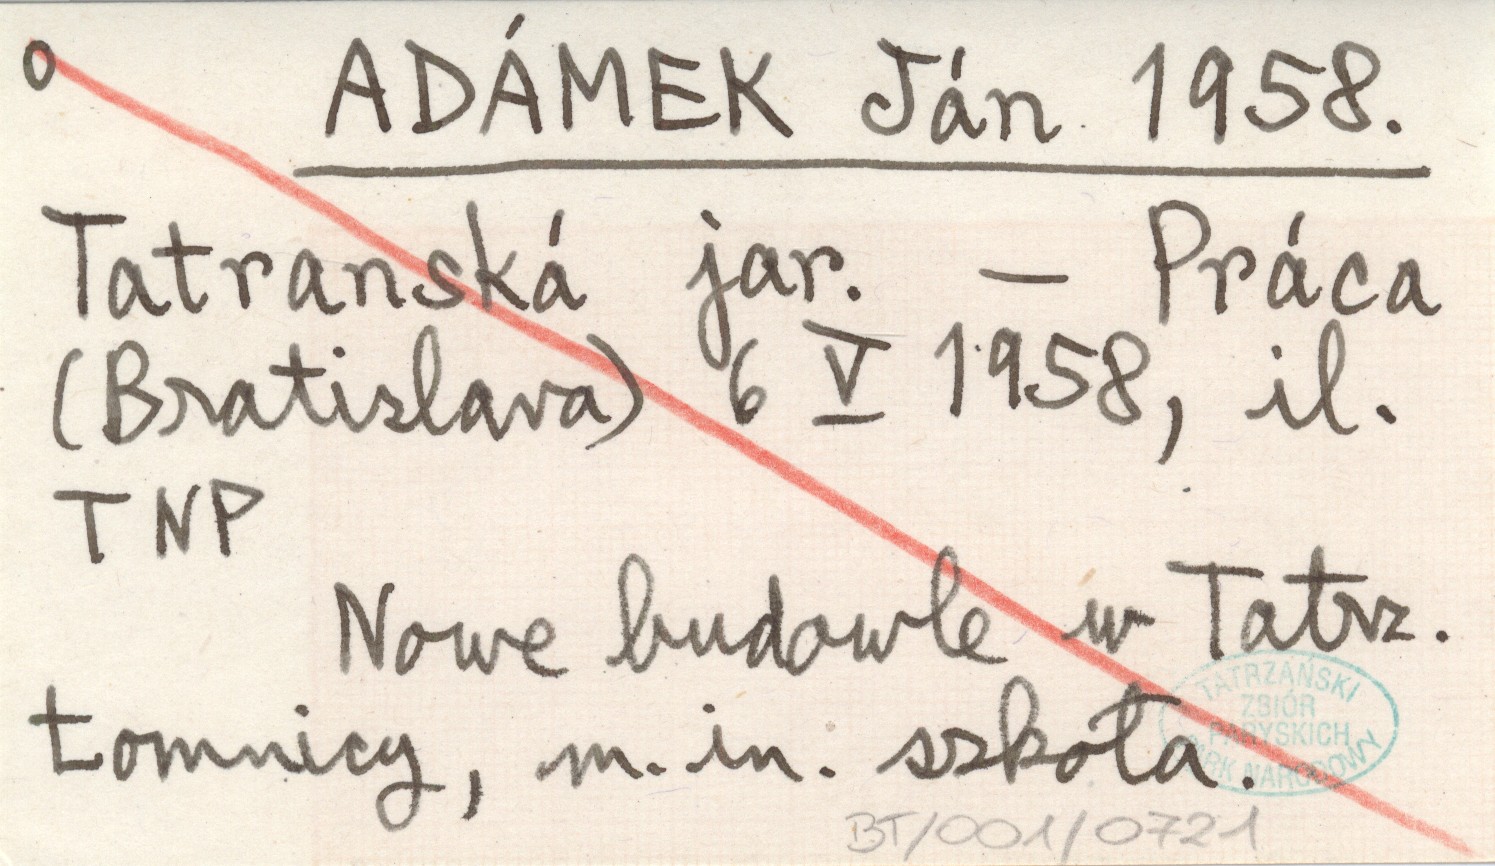 o ADÁMEK Ján 1958.
Tatranská jar. — Práca
(Bratislava) 6 V 1958, il.
TNP
Nowe budowle w Tatrz.
Łomnicy, m.in. szkoła.
TATRZAŃSKI
ZBIÓR
PARYSKICH
PARK NARODOWY
BT/001/0721